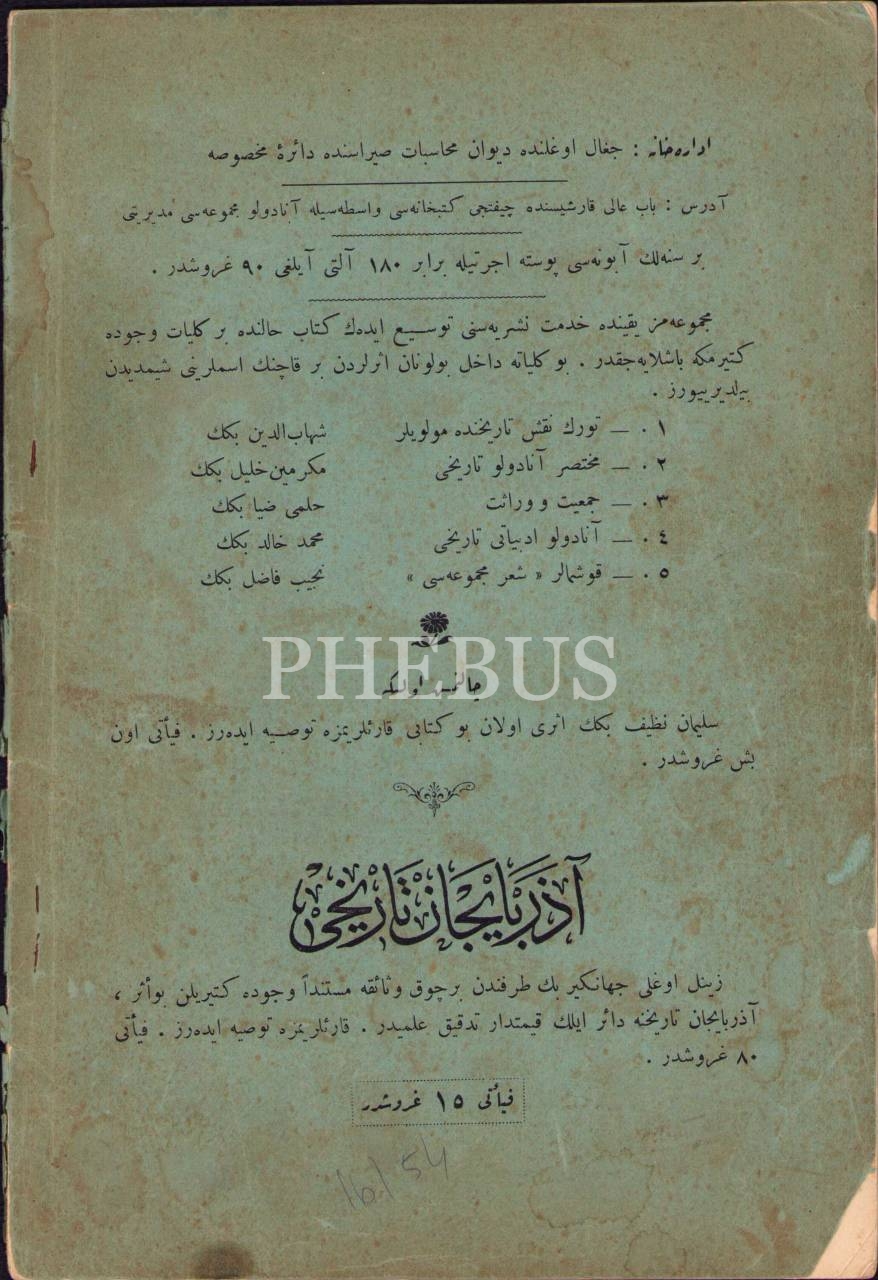 اداره‌خانه : جغال اوغلنده دیوان محاسبات صیراسنده دائرهٔ مخصوصه
آدرس : باب عالی قارشیسنده چیفتجی کتبخانه‌سی واسطه‌سیله آنادولو مجموعه‌سی مدیریتی
بر سنه‌لك آبونه‌سی پوسته اجرتیله برابر ١٨٠ آلتی آیلغی ٩٠ غروشدر .
مجموعه‌مز یقینده خدمت نشریه‌سنی توسیع ایده‌ك کتاب حالنده بر کلیات وجوده
کتیرمکه باشلایه‌جقدر . بو کلیاته داخل بولونان اثرلردن بر قاچنك اسملرینی شیمدیدن
بیلدیرییورز .
١ . — تورك نقش تاریخنده مولویلر شهاب‌الدین بكك
٢ . — مختصر آنادولو تاریخی مکرمین خلیل بكك
٣ . — جمعیت و وراثت حلمی ضیا بكك
٤ . — آنادولو ادبیاتی تاریخی محمد خالد بكك
٥ . — قوشمالر « شعر مجموعه‌سی » نجیب فاضل بكك
PHEBUS
سلیمان نظیف بكك اثری اولان بو کتابی قارئلریمزه توصیه ایده‌رز . فیأتی اون
بش غروشدر .
آذربایجان تاریخی
زینل اوغلی جهانکیر بك طرفندن برچوق وثائقه مستنداً وجوده کتیریلن بوأثر ،
آذربایجان تاریخنه دائر ایلك قیمتدار تدقیق علمیدر . قارئلریمزه توصیه ایده‌رز . فیأتی
٨٠ غروشدر .
فیأتی ١٥ غروشدر
161 54